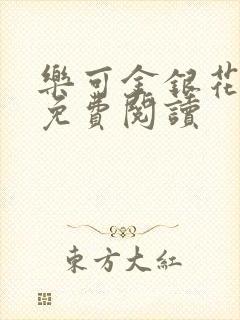 樂可金銀花
免費閱讀
東方大紅